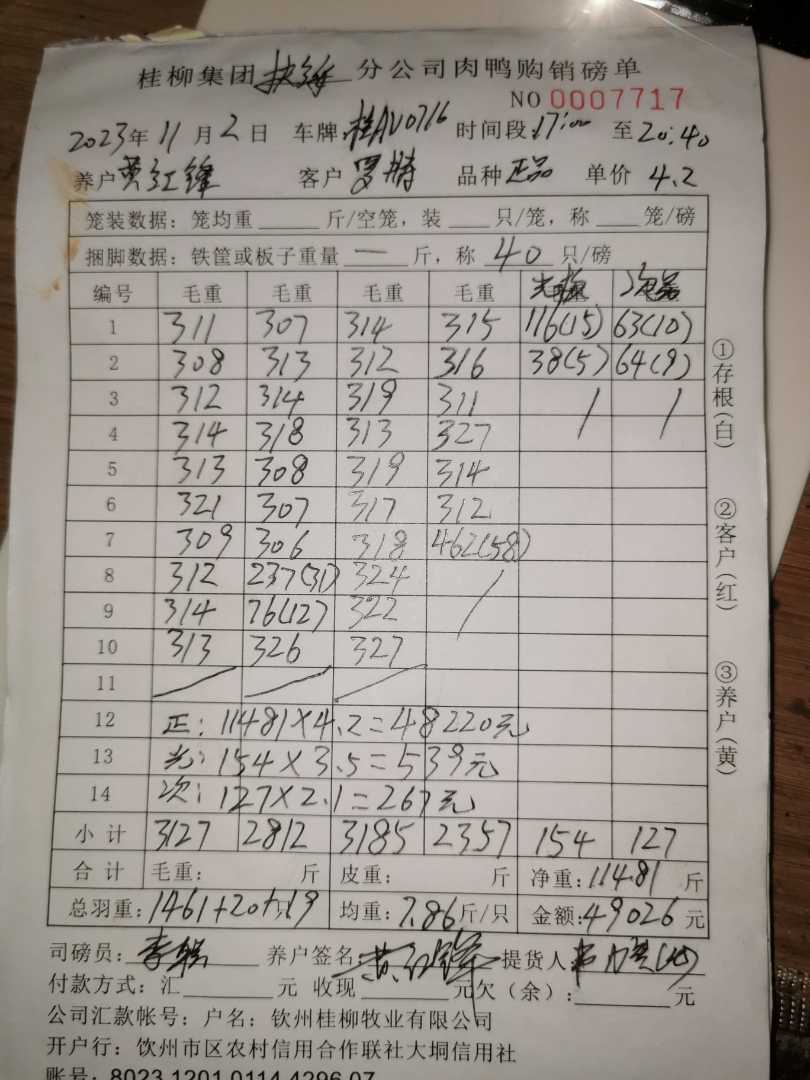 桂柳集团 分公司肉鸭购销磅单
NO 0007717
2023年 11月 2日 车牌:桂AV0716 时间段:17:00 至 20:40
养户 黄红锋 客户 罗 品种 正品 单价 4.2
笼装数据: 笼均重 斤/空笼, 装 只/笼, 称 笼/磅
捆脚数据: 铁筐或板子重量 — 斤, 称 40 只/磅
编号 毛重 毛重 毛重 毛重 次品
1 311 307 314 315 116(15) 63(10)
2 308 313 312 316 38(5) 64(9)
3 312 314 319 311 / /
4 314 318 313 327
5 313 308 319 314
6 321 307 317 312
7 309 306 318 462(58)
8 312 237(31) 324 /
9 314 76(12) 322
10 313 326 327
11 / / /
12 正: 11481×4.2=48220元
13 光: 154×3.5=539元
14 次: 127×2.1=267元
小计 3127 2812 3185 2357 154 127
合计 毛重: 斤 皮重: 斤 净重: 11481 斤
总羽重: 1461+20+19 只 均重: 7.86 斤/只 金额: 49026 元
司磅员: 李 养户签名 黄红锋 提货人
付款方式: 汇 元 收现 元欠(余): 元
公司汇款帐号: 户名: 钦州桂柳牧业有限公司
开户行: 钦州市区农村信用合作联社大垌信用社
账号: 8023 1201 0114 4296 07
①存根(白) ②客户(红) ③养户(黄)